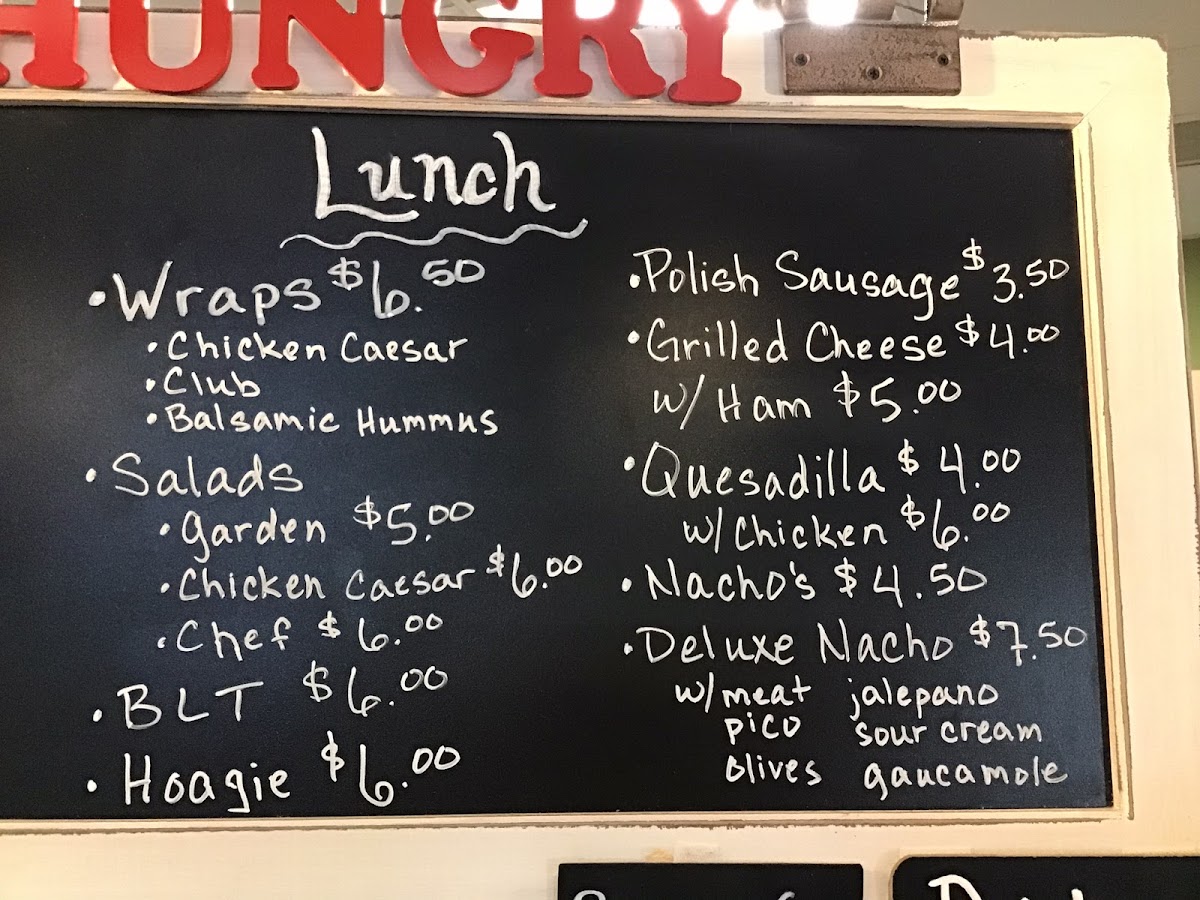 HUNGRY
Lunch
• Wraps $6.50
• Chicken Caesar
• Club
• Balsamic Hummus
• Salads
• Garden $5.00
• Chicken Caesar $6.00
• Chef $6.00
• BLT $6.00
• Hoagie $6.00
• Polish Sausage $3.50
• Grilled Cheese $4.00
w/ Ham $5.00
• Quesadilla $4.00
w/ Chicken $6.00
• Nacho's $4.50
• Deluxe Nacho $7.50
w/ meat jalepano
pico sour cream
olives gaucamole